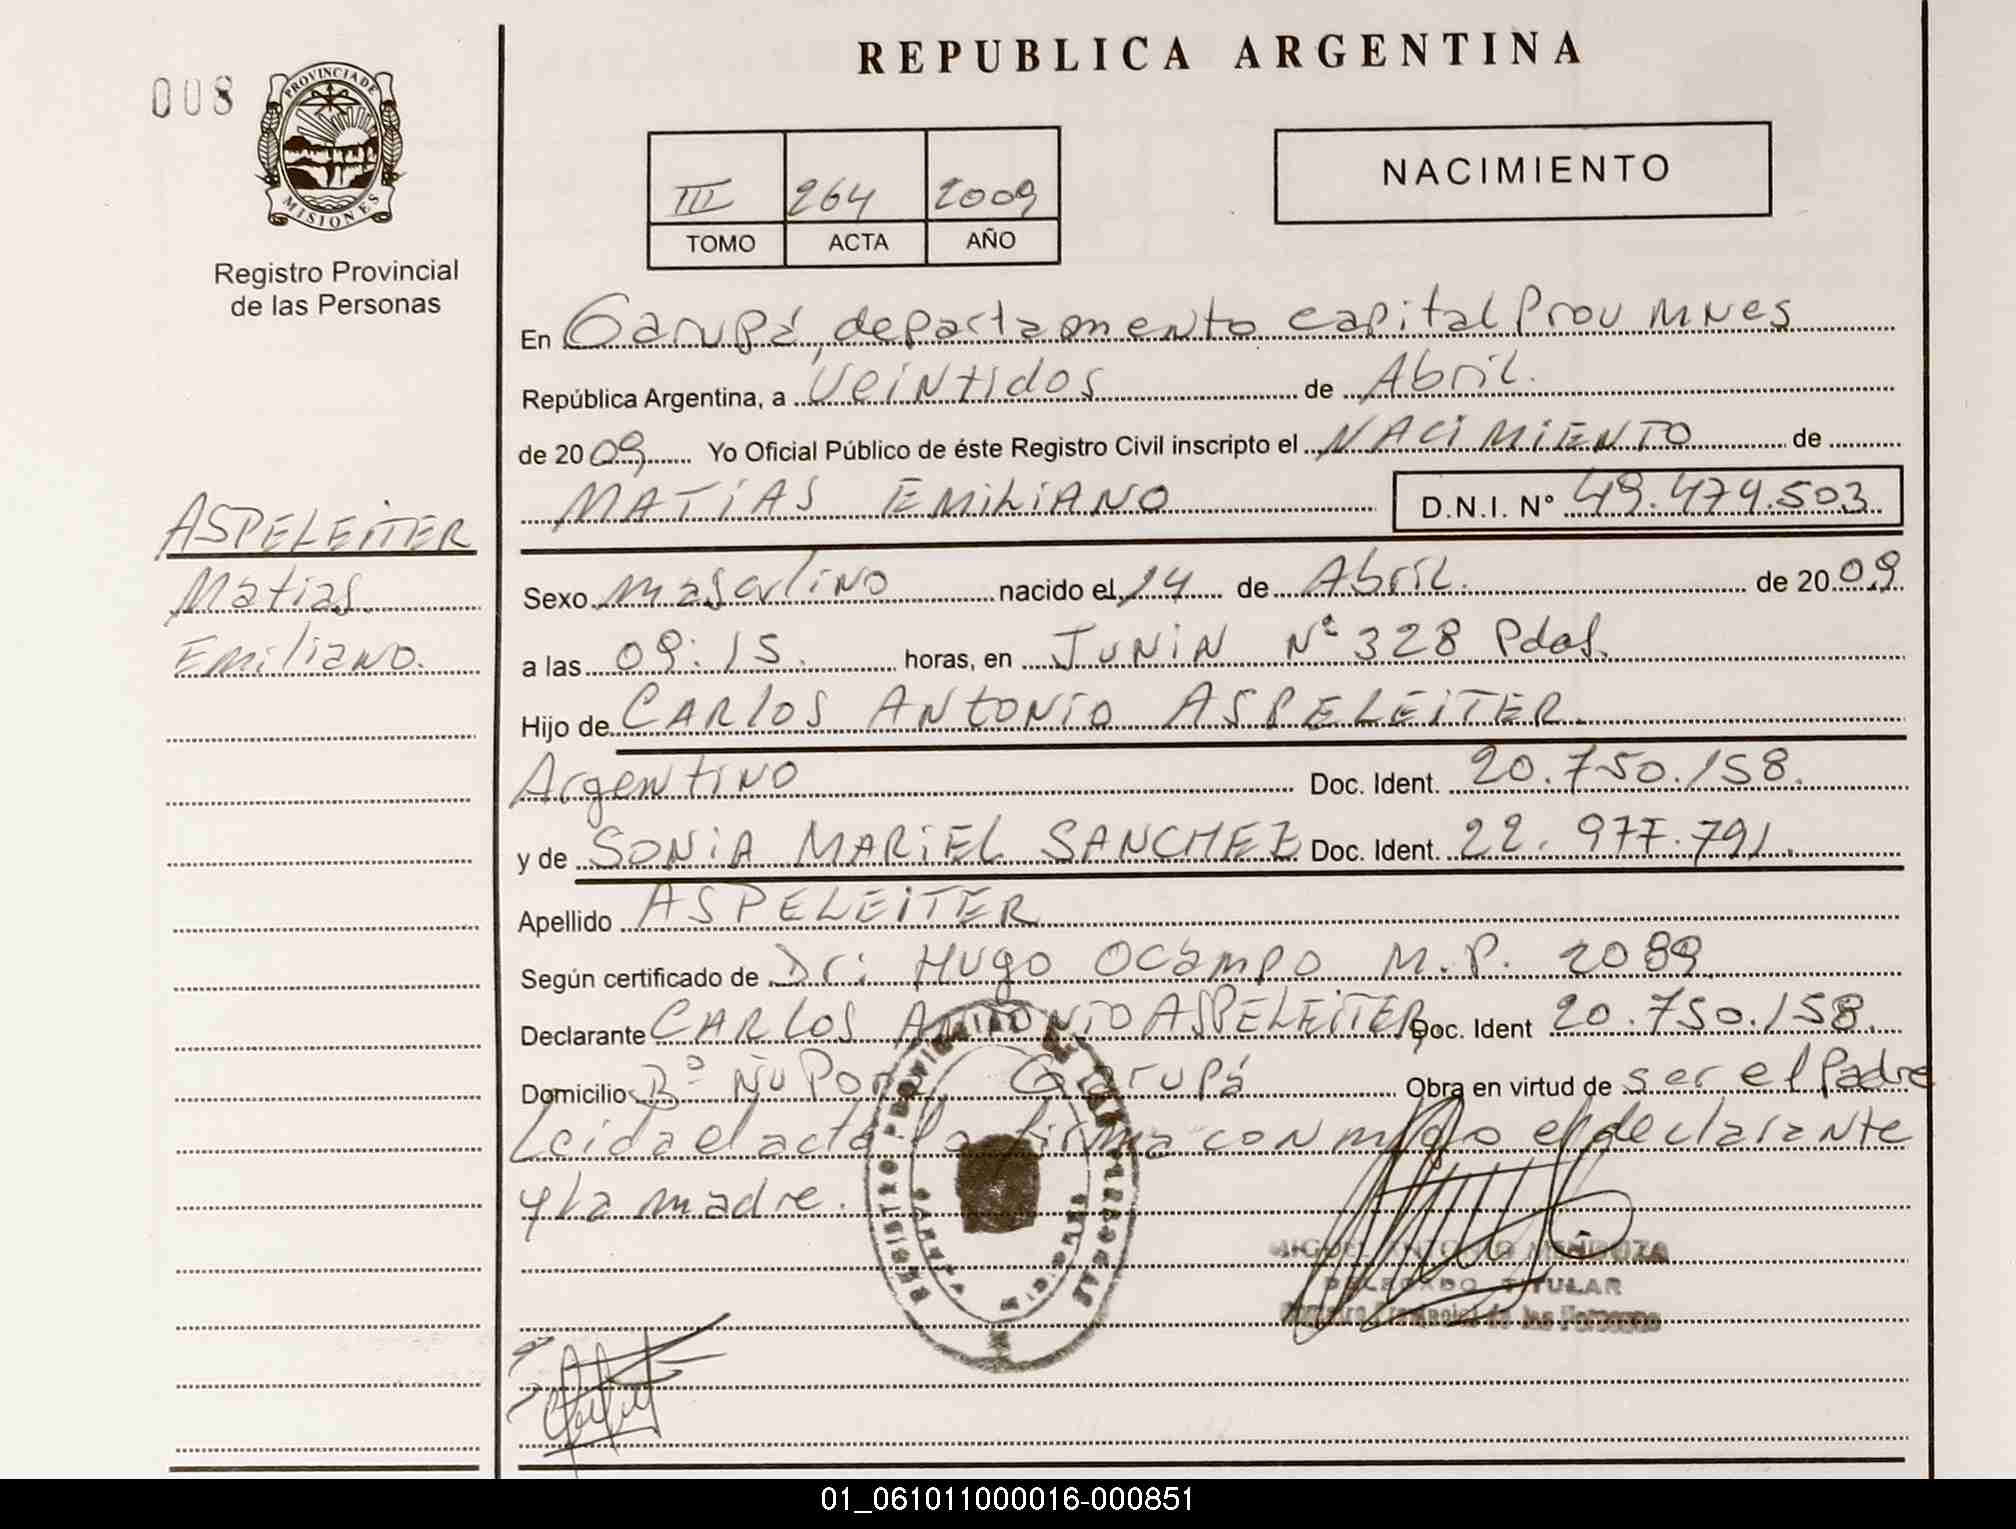 REPUBLICA ARGENTINA
008
PROVINCIA DE
MISIONES
Registro Provincial
de las Personas
NACIMIENTO
III 264 2009
TOMO ACTA AÑO
En Garupá, departamento capital Prov Mnes
República Argentina, a Veintidos de Abril.
de 2009 Yo Oficial Público de éste Registro Civil inscripto el NACIMIENTO de
MATIAS EMILIANO D.N.I. Nº 49.479.503
ASPELEITER
Matias
Emiliano.
Sexo Masculino nacido el 14 de Abril. de 2009
a las 09:15. horas, en JUNIN Nº 328 Pdas.
Hijo de CARLOS ANTONIO ASPELEITER.
Argentino Doc. Ident. 20.750.158.
y de SONIA MARIEL SANCHEZ Doc. Ident. 22.977.791.
Apellido ASPELEITER
Según certificado de Dr: Hugo Ocampo M.P. 2089
Declarante CARLOS ANTONIO ASPELEITER, Doc. Ident 20.750.158.
Domicilio Bº Ñu Porá Garupá Obra en virtud de ser el Padre
Leida el acta la firma conmigo el declarante
y la madre.
REGISTRO PROVINCIAL DE LAS PERSONAS
GARUPA MISIONES
MIGUEL ANTONIO MENDOZA
DELEGADO TITULAR
Registro Provincial de las Personas
01_061011000016-000851